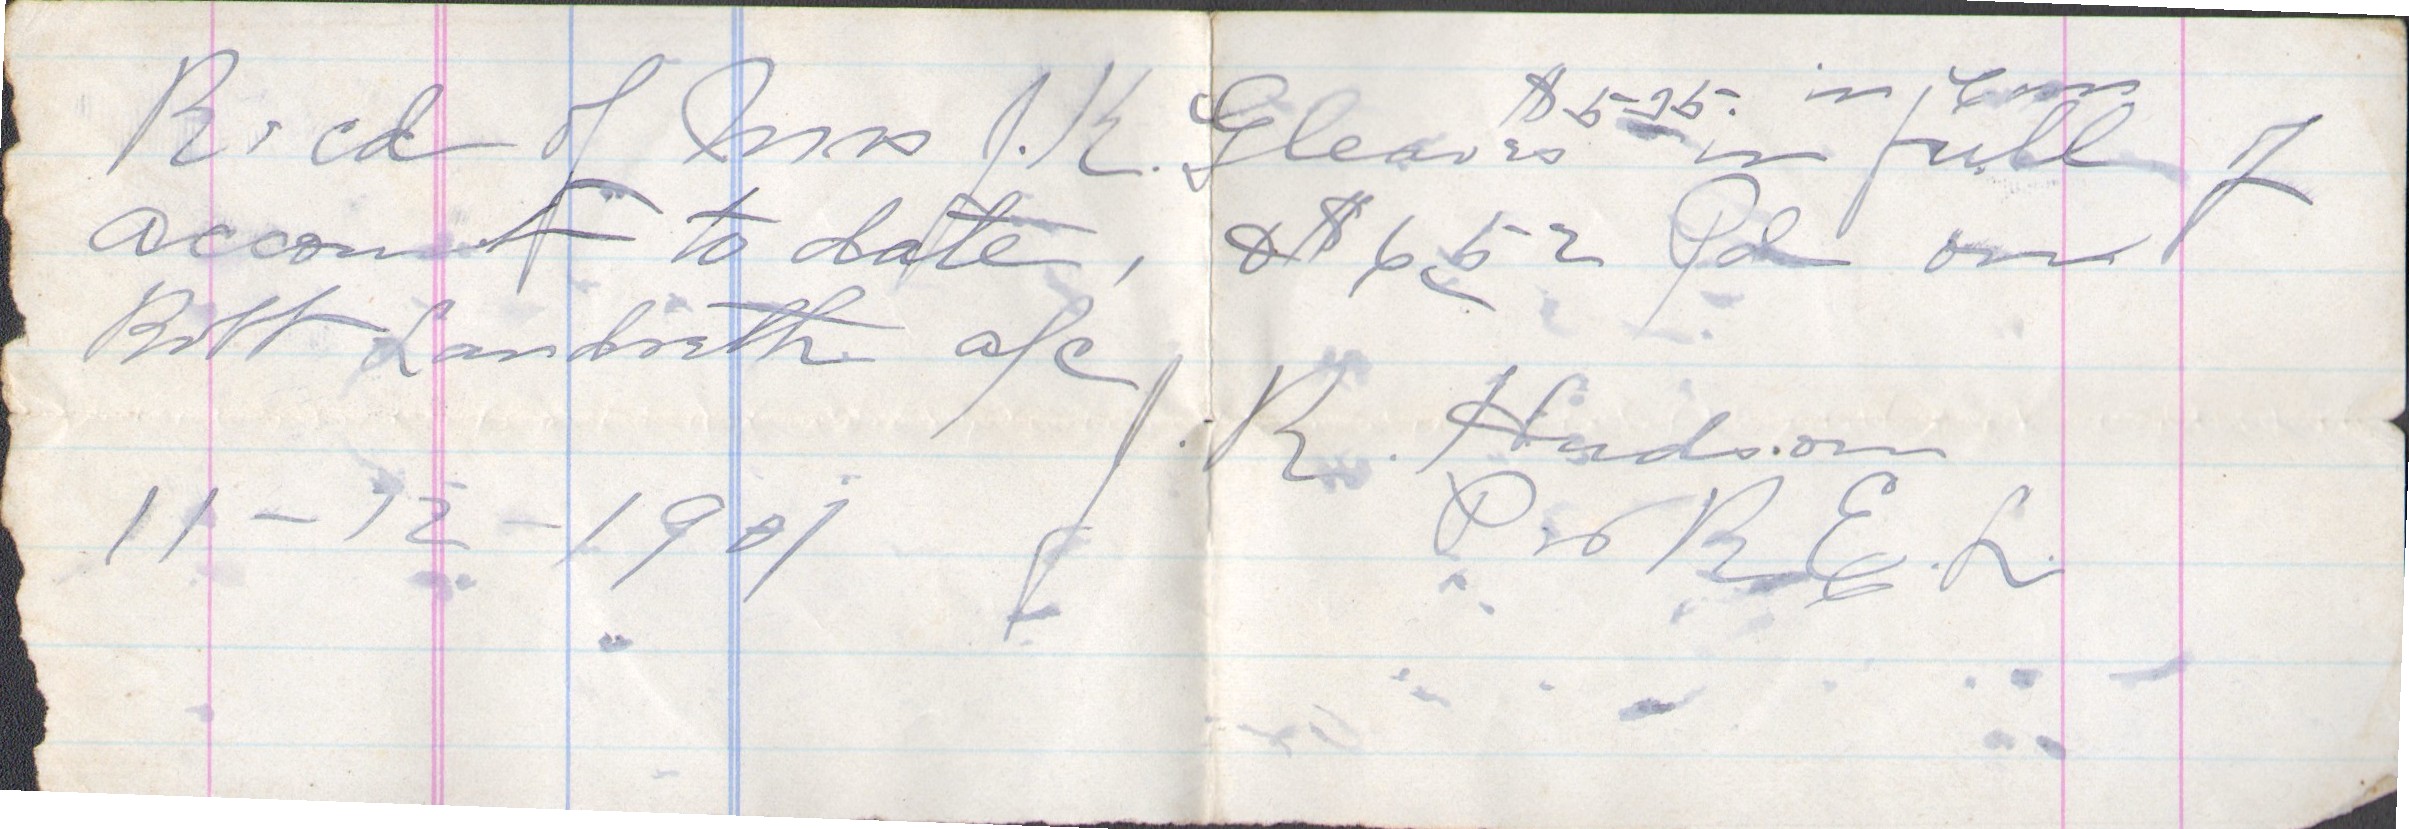 $5.75. in
Recd of Mrs J. K. Gleaves in full of
account to date, & $6.52 Pd on
Robt Landreth a/c
J. R. Hudson
11-12-1901 Per R. E. L.